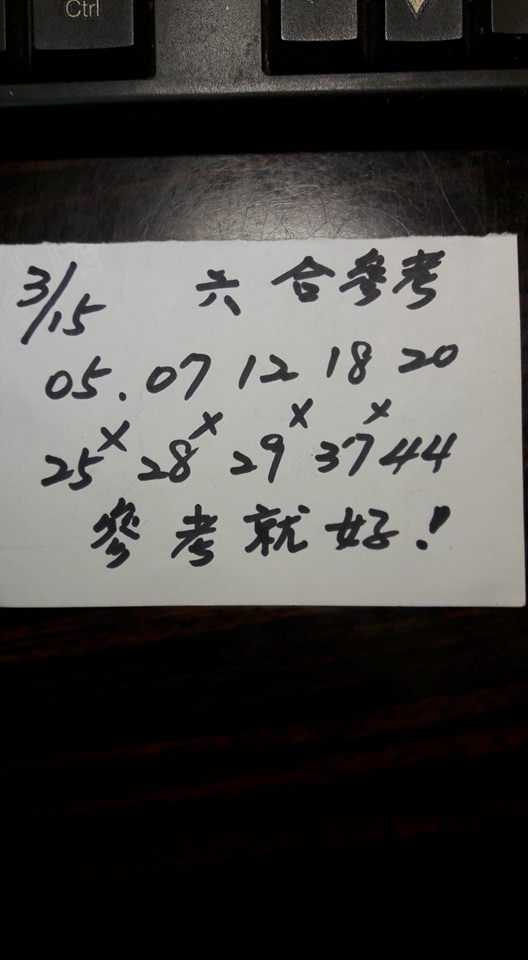 Ctrl
3/15 六合參考
05.07 12 18 20
x x x x
25 28 29 37 44
參考就好!